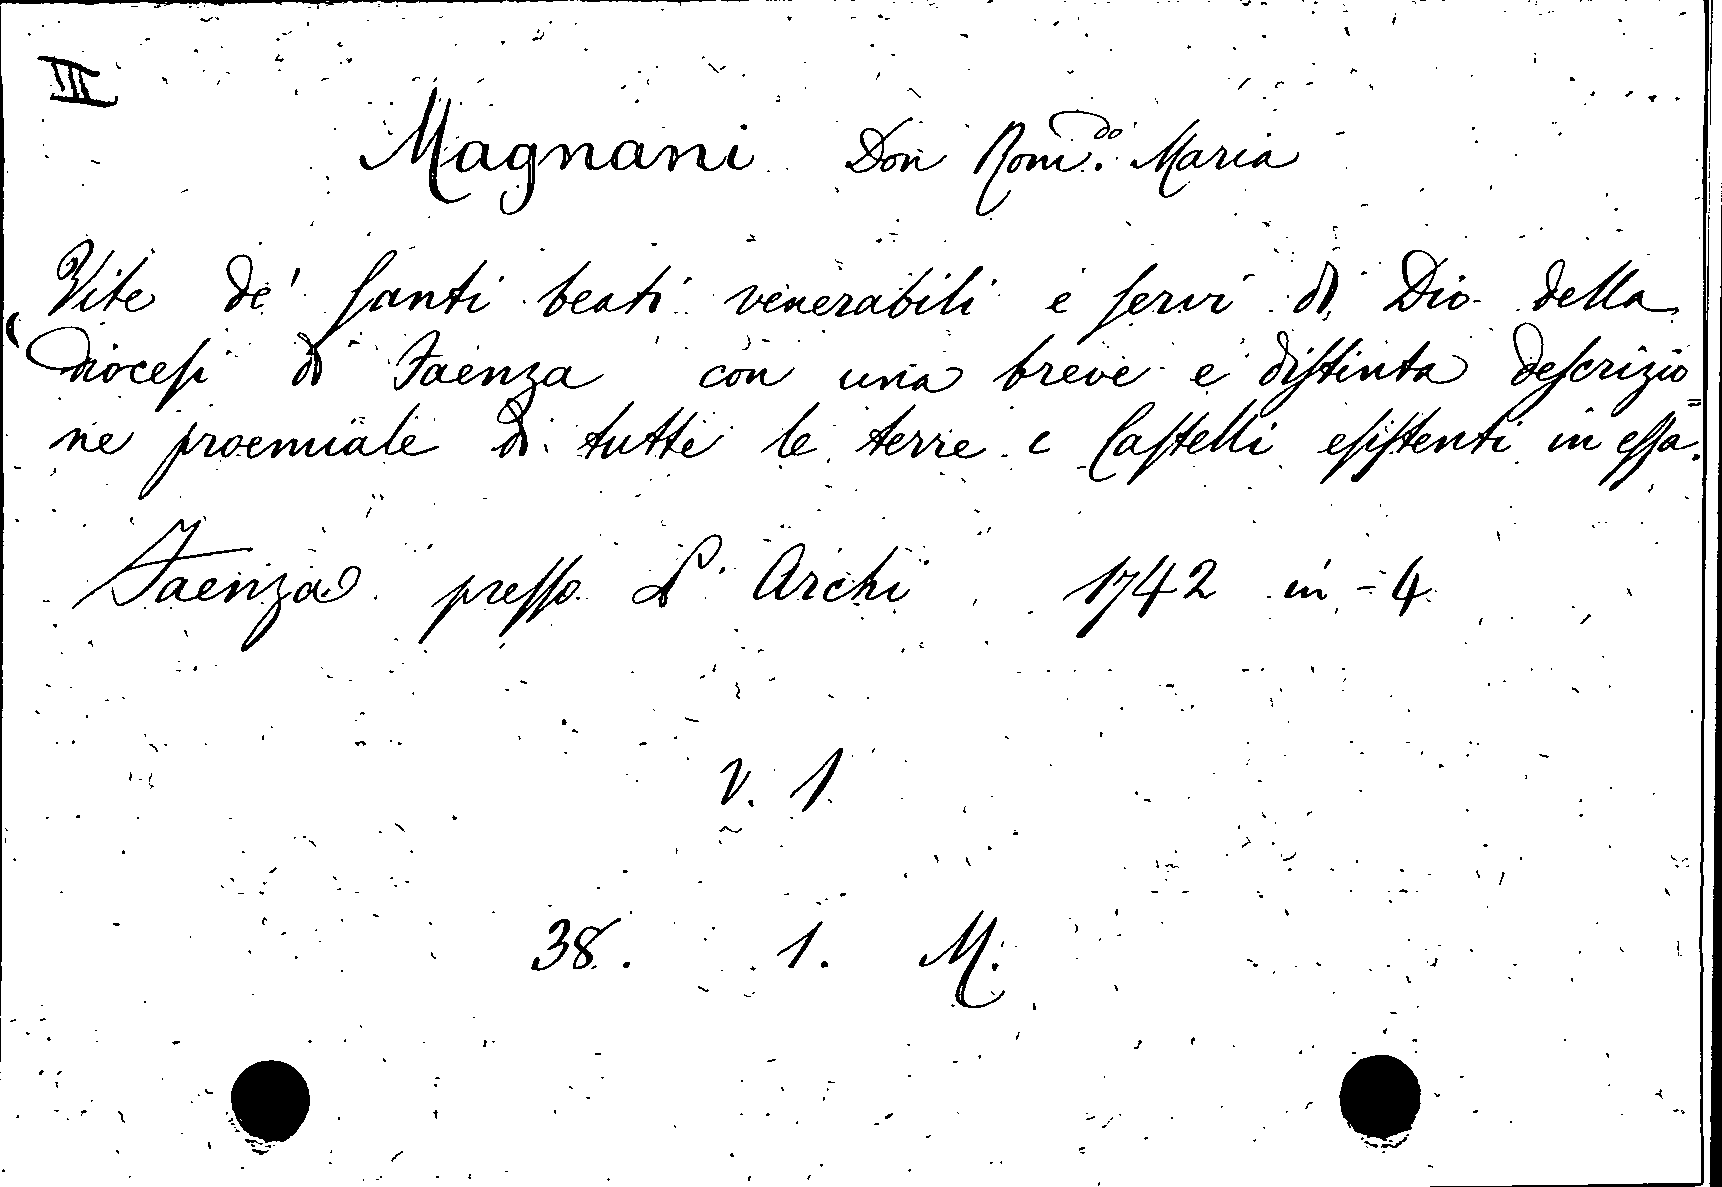 III
Magnani Don Rom.do Maria
Vite de' santi beati venerabili e servi di Dio della
diocesi di Faenza con una breve e distinta descrizio=
ne proemiale di tutte le terre e Castelli esistenti in essa.
Faenza presso l' Archi 1742 in-4
V. 1
38. 1. M.